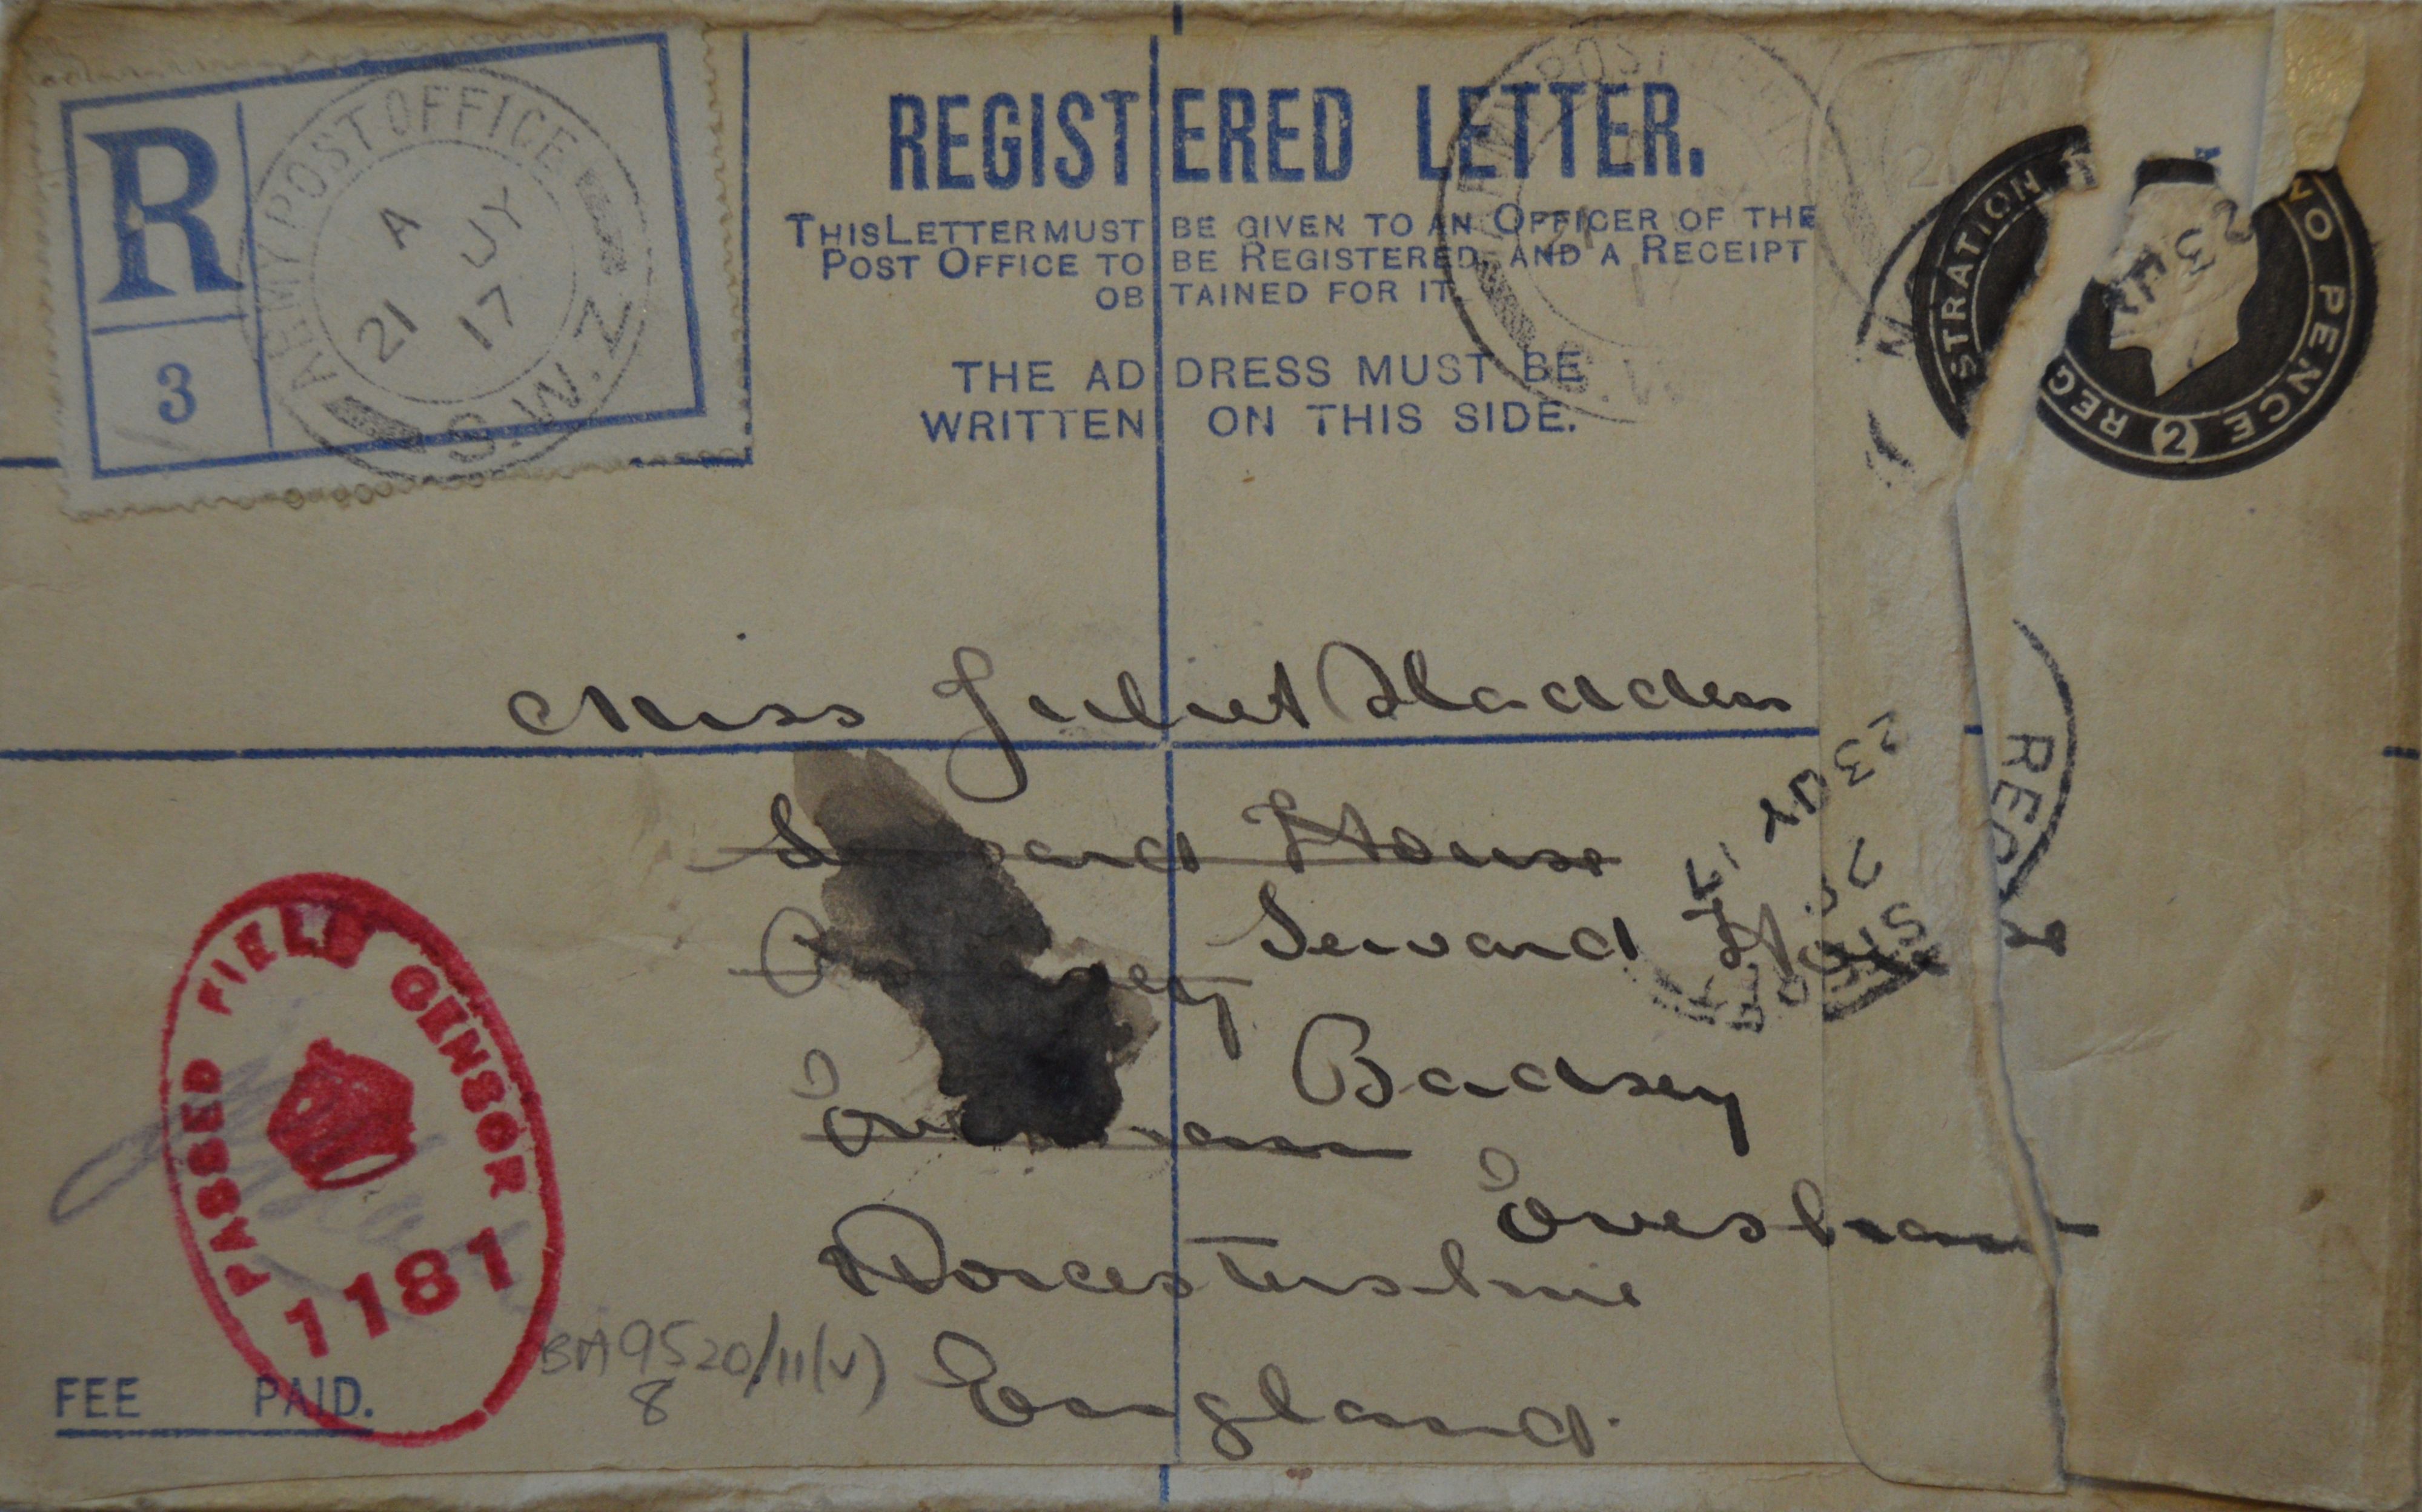 R
3
ARMY POST OFFICE
A
21 JY 17
S.W.Z
REGISTERED LETTER.
THIS LETTER MUST BE GIVEN TO AN OFFICER OF THE
POST OFFICE TO BE REGISTERED, AND A RECEIPT
OBTAINED FOR IT.
THE ADDRESS MUST BE
WRITTEN ON THIS SIDE.
ARMY POST OFFICE
21
S.W.
STRATION
TWO PENCE
2
REG
Miss Juliet Sladden
Seward House
Seward House
Badsey
Evesham
Worcestershire
England.
REG
23 JY 17
PASSED FIELD CENSOR
1181
BA9520/11(V)
8
FEE PAID.